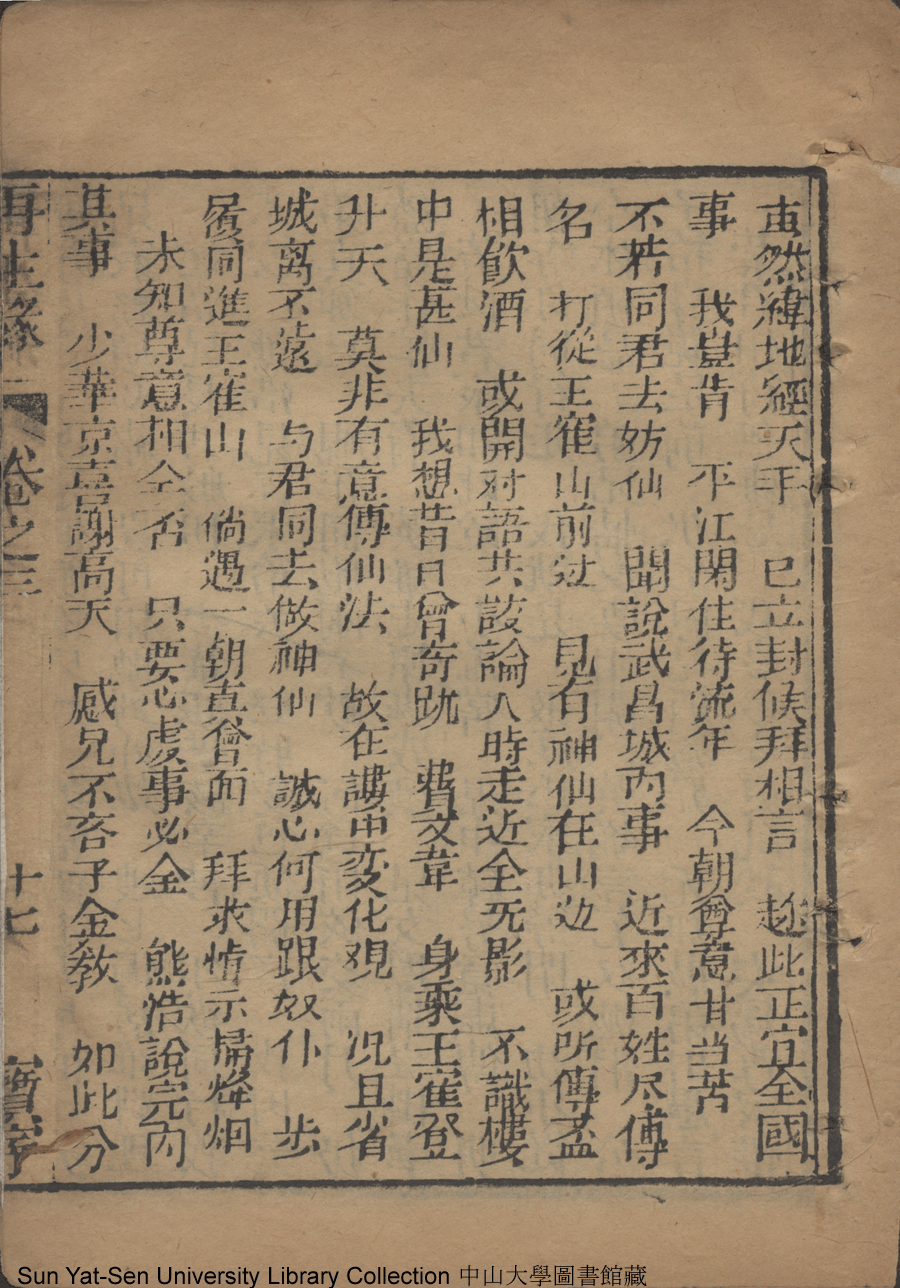 然緯地經天手　已立封候拜相言　趁此正宜全國
事　我豈肯　平江閑住待流年　今朝尊意甘当苦
不若同君去妨仙　聞說武昌城內事　近來百姓尽傳
名　打從王寉山前过　見有神仙在山边　或所傳盃
相飲酒　或開对語共談論　人時走近全无影　不識樓
中是甚仙　我想昔日曾奇跡　費文韋　身乘王寉登
升天　莫非有意傳仙法　故在中变化观　况且省
城离不遠　与君同去做神仙　誠心何用跟奴仆　步
同進王寉山　倘遇一朝直會面　拜求情示烟
未知尊意相全否　只要心虔事必金　熊浩說完內
其事　少華京喜謝高天　感兄不吝子金敎　如此分
再生緣　卷之三　十七